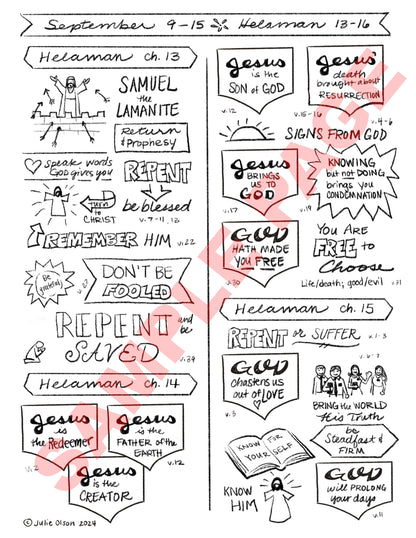 September 9-15 Helaman 13-16
Helaman ch. 13
SAMUEL
the
LAMANITE
Return
& Prophesy
Speak words
God gives you
REPENT
be blessed
v. 7-11, 13
turn
to
CHRIST
REMEMBER HIM v.22
Be
grateful
DON'T BE
FOOLED
REPENT and
be
SAVED
v.39
Helaman ch. 14
Jesus
is
the Redeemer
v.2
Jesus
is the
FATHER of the
EARTH
v.12
Jesus
is the
CREATOR
© Julie Olson 2024
Jesus
is the
SON of GOD
v.12
Jesus
death
brought about
RESURRECTION
v.15-16
SIGNS FROM GOD
v.4-6
Jesus
BRINGS
US TO
GOD
v.17
KNOWING
but not DOING
brings you
CONDEMNATION
v.19
GOD
HATH MADE
YOU FREE
v.30
YOU ARE
FREE to
Choose
Life/death; good/evil v.31
Helaman ch. 15
REPENT or SUFFER v.1-3
GOD
chastens us
out of LOVE
v.3
BRING the WORLD
His Truth
KNOW FOR
YOUR SELF
be
Steadfast &
FIRM
KNOW
HIM
GOD
will PROLONG
your days
v.11
SAMPLE PAGE